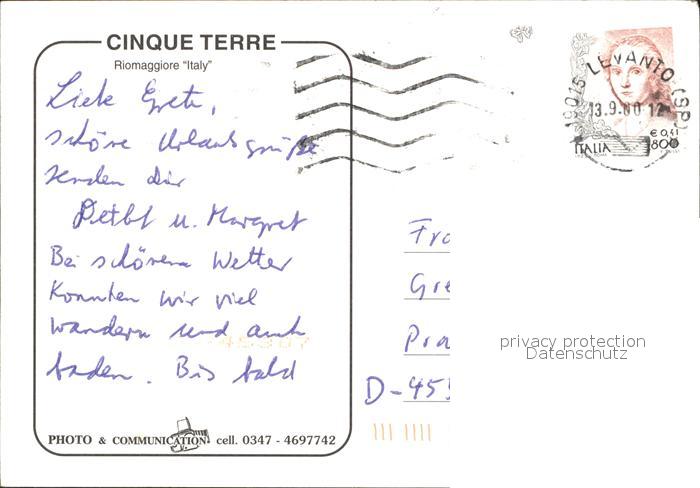 CINQUE TERRE
Riomaggiore "Italy"
Liebe Grete,
schöne Urlaubsgrüße
senden dir
Detlef u. Margret
Bei schönem Wetter
konnten wir viel
wandern und auch
baden. Bis bald
PHOTO & COMMUNICATION cell. 0347 - 4697742
19015 LEVANTO (SP)
13.9.00 17
€ 0,41
ITALIA 800
Fra
Gre
D-455
privacy protection
Datenschutz